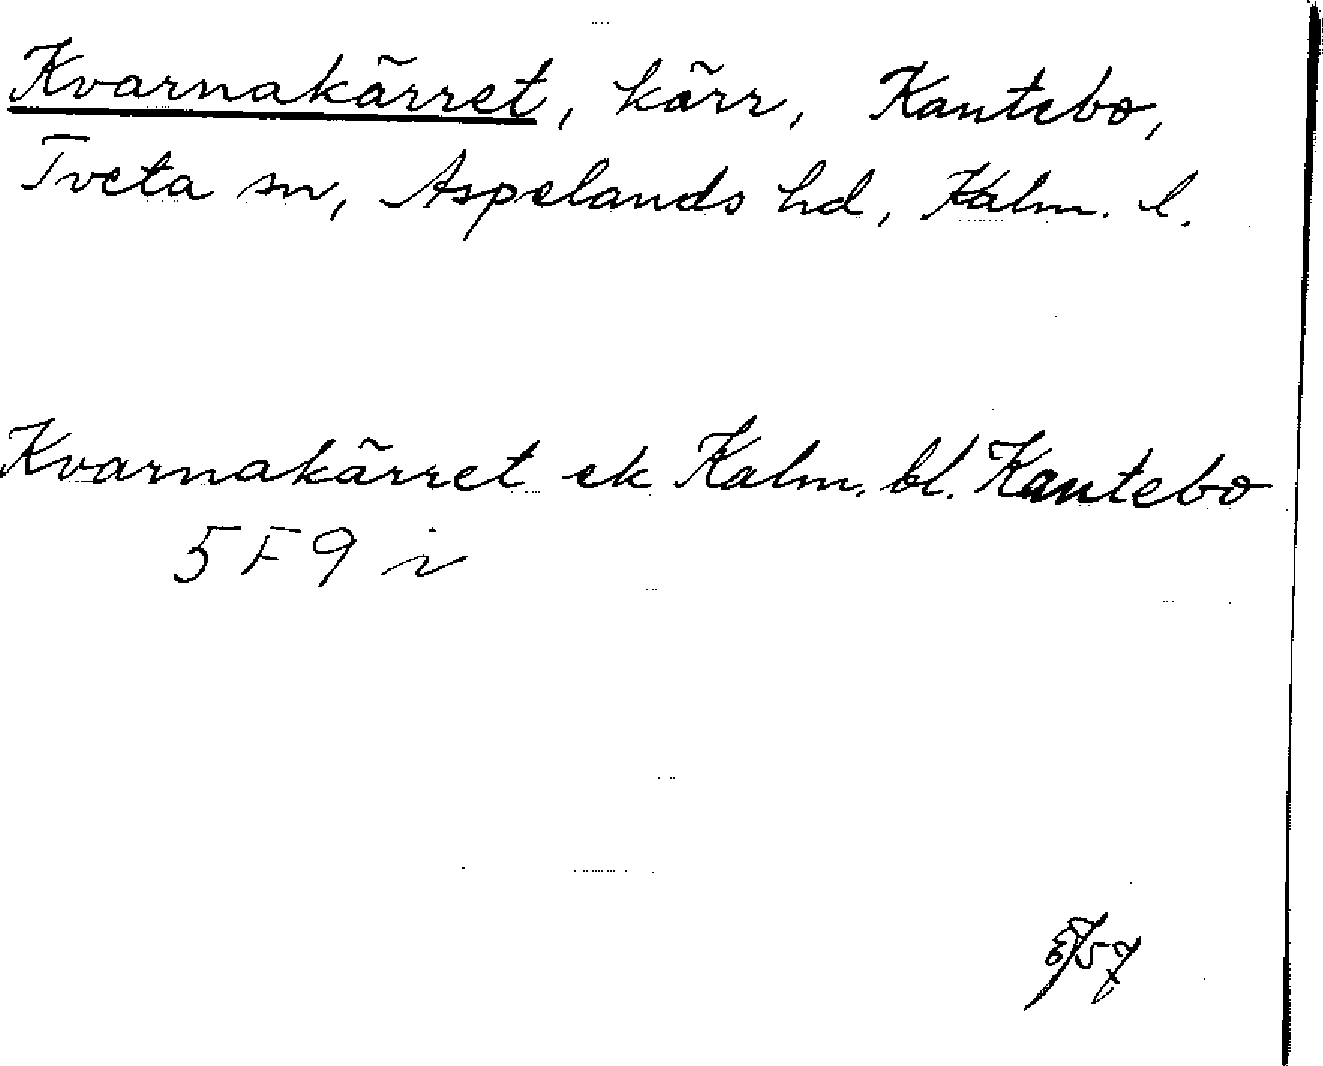 Kvarnakärret, kärr, Kantebo,
Tveta sn, Aspelands hd, Kalm. l.
Kvarnakärret ek Kalm. bl. Kantebo
5 F 9 i